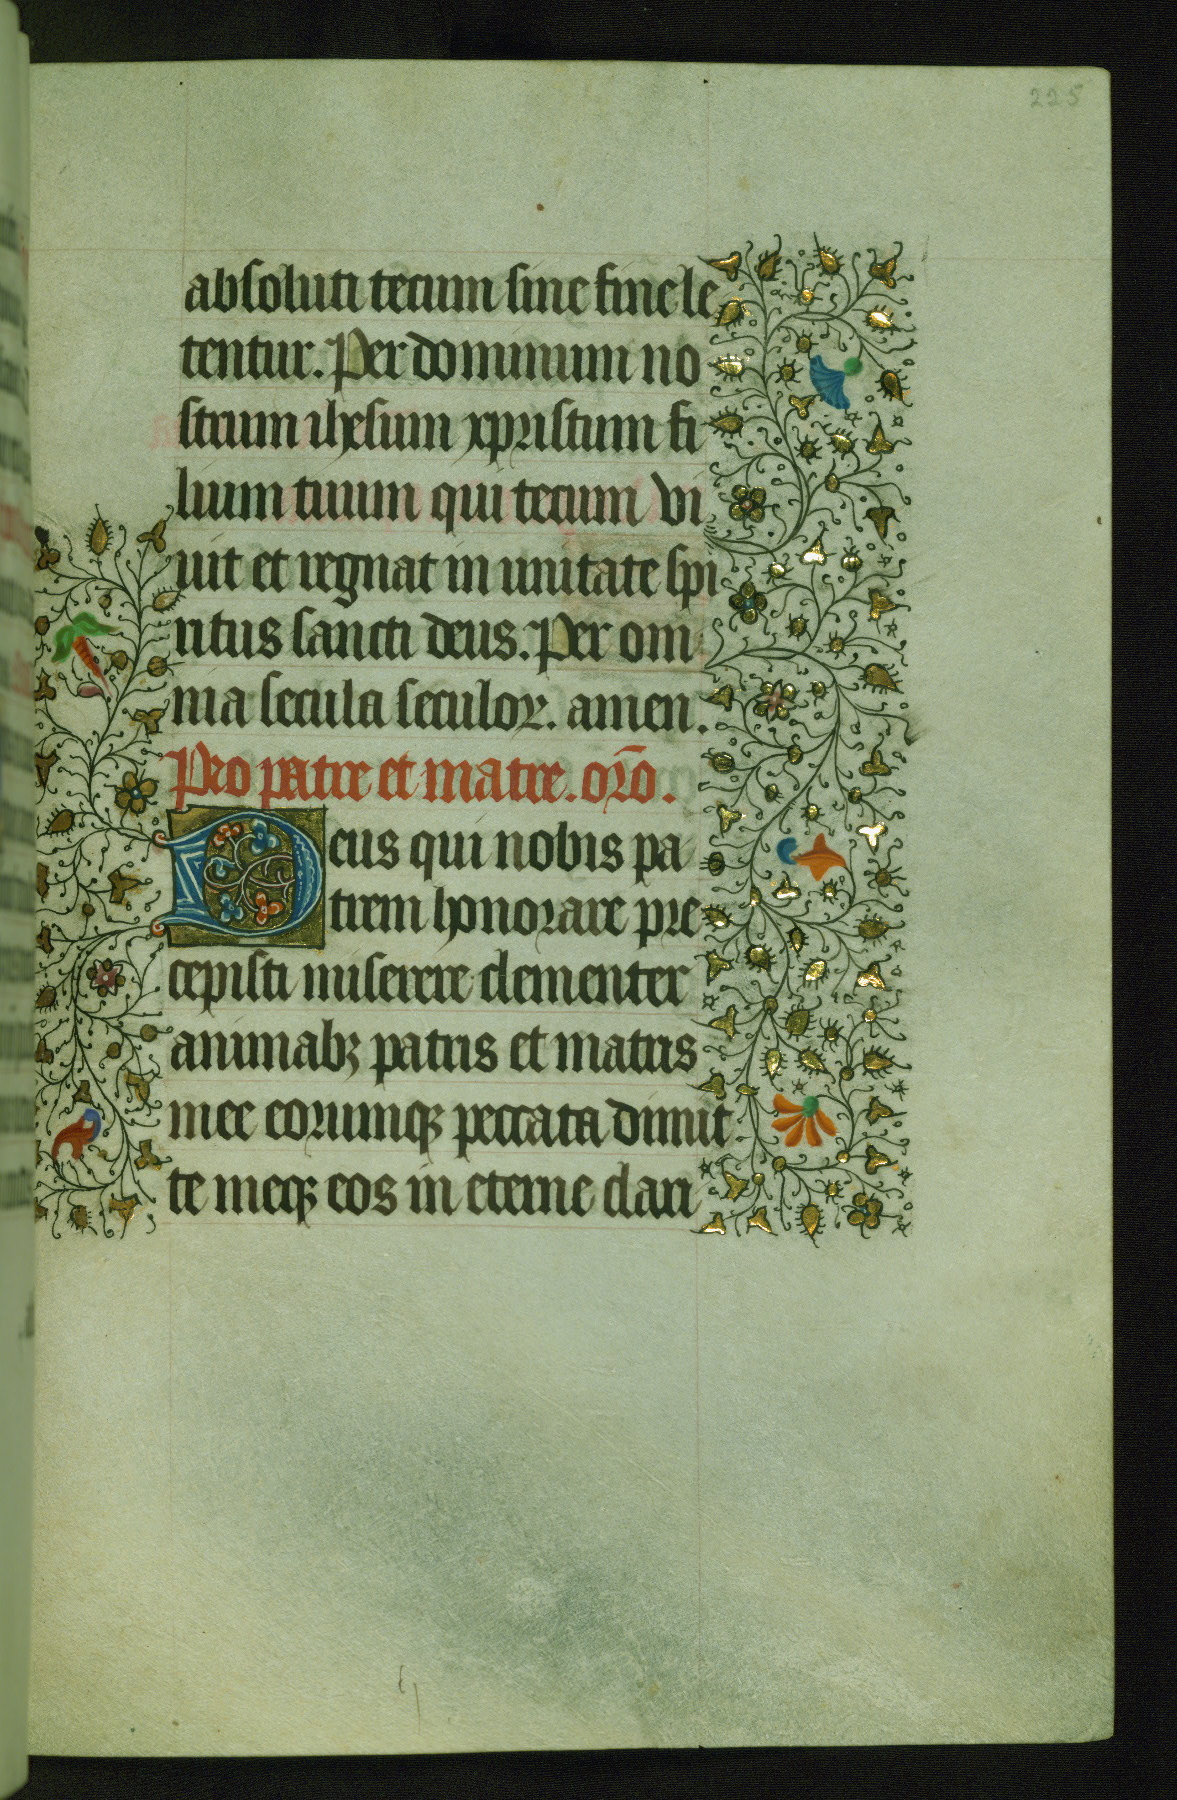 225
absoluti tecum sine fine le
tentur. Per dominum no
strum ihesum xpristum fi
lium tuum qui tecum vi
uit et regnat in unitate spi
ritus sancti deus. Per om
nia secula seculoꝝ. amen.
Pro patre et matre. or̄o.
Deus qui nobis pa
trem honorare pre
cepisti miserere clementer
animabꝫ patris et matris
mee eorumqꝫ peccata dimit
te meqꝫ eos in eterne clari